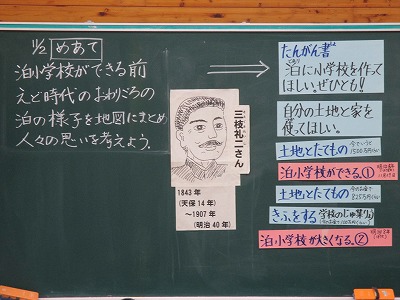 1/2 めあて
泊小学校ができる前
えど時代のおわりごろの
泊の様子を地図にまとめ
人々の思いを考えよう。
三枝礼二さん
1843年
(天保14年)
~1907年
(明治40年)
たんがん書
泊に小学校を作って
ほしい。ぜひとも!!
自分の土地と家を
使ってほしい。
土地とたてもの
泊小学校ができる。①
土地とたてもの
きふをする
泊小学校が大きくなる。②